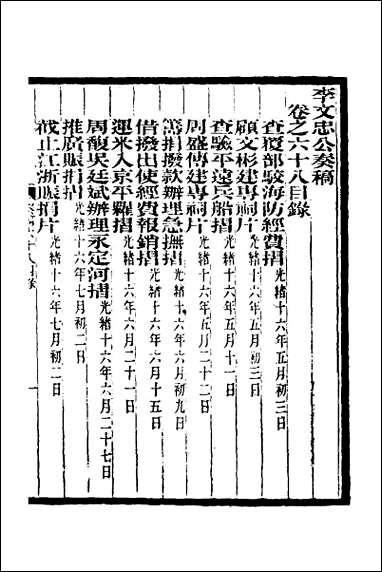 李文忠公奏稿
卷之六十八目錄
查覆部駁海防經費摺 光緒十六年五月初三日
顧文彬建專祠片 光緒十六年五月初三日
查驗平遠兵船摺 光緒十六年五月十一日
周盛傳建專祠片 光緒十六年五月二十二日
籌捐撥款辦理急撫摺 光緒十六年六月初九日
借撥出使經費報銷摺 光緒十六年六月十五日
運米入京平糶摺 光緒十六年六月二十一日
周馥吳廷斌辦理永定河摺 光緒十六年六月二十七日
推廣賑捐摺 光緒十六年七月初二日
截止江浙賑捐片 光緒十六年七月初二日
一